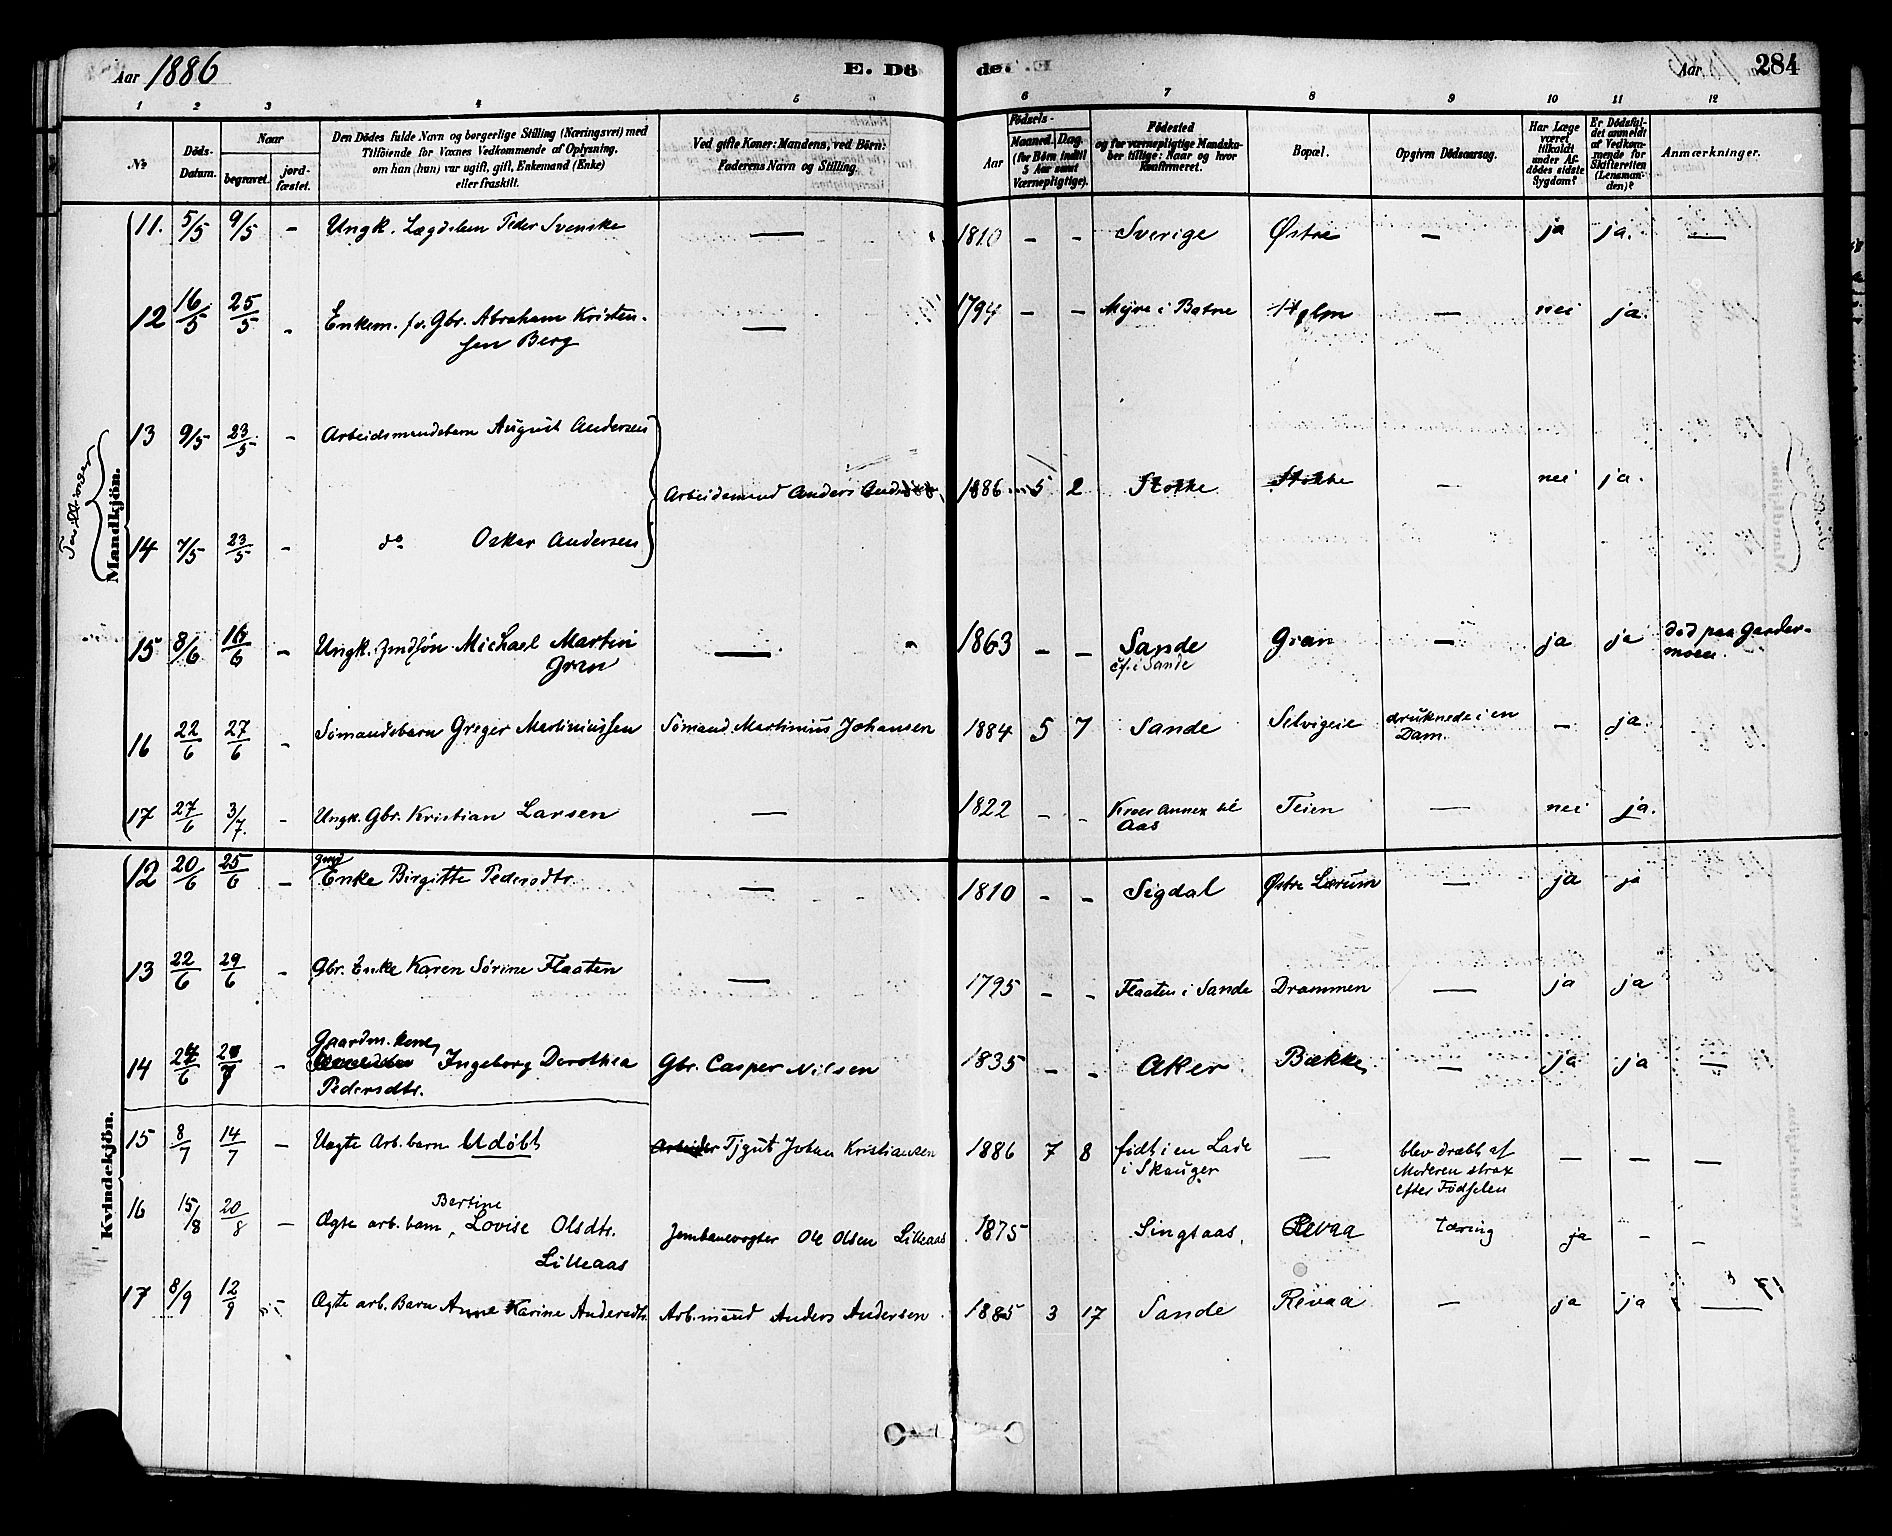 Aar 1886 E. Dö de. Aar 284
1 2 3 4 5 6 7 8 9 10 11 12
No Döds-Datum. Naar begravet. jord-fæstet. Den Dödes fulde Navn og borgerlige Stilling (Næringsvei) med Tilföiende for Voxnes Vedkommende af Oplysning, om han (hun) var ugift, gift, Enkemand (Enke) eller fraskilt. Ved gifte Koner: Mandens, ved Börn: Faderens Navn og Stilling. Födsels- Aar Maaned. Dag. (for Börn indtil 5 Aar samt Værnepligtige). Födested og for værnepligtige Mandskaber tillige: Naar og hvor Konfirmeret. Bopæl. Opgiven Dödsaarsag. Har Læge været tilkaldt under Afdödes sidste Sygdom? Er Dödsfaldet anmeldt af Vedkommende for Skifteretten (Lensmanden)? Anmærkninger.
Mandkjön.
11. 5/5 9/5 - Ungk. Lægdslem Peder Svenske — 1810 - - Sverige Østre — ja ja. —
12 16/5 25/5 - Enkem. fv. Gbr. Abraham Kristen-
sen Berg — 1794 - - Myre i Botne Holm — nei ja.
Tvillinger
13 9/5 23/5 - Arbeidsmandsbarn August Andersen
Arbeidsmand Anders Anders 1886 5 2 Stokke Stokke — nei ja.
14 7/5 23/5 - do Oskar Andersen
15 8/6 16/6 - Ungk. Indsøn Michael Martin
Gran — 1863 - - Sande
cf. i Sande Gran — ja ja död paa Garder-
moen
16 22/6 27/6 - Sömandsbarn Greger Martiniussen Sömand Martinius Johansen 1884 5 7 Sande Selvigeie druknede i en
Dam. - ja
17 27/6 3/7. - Ungk. Gbr. Kristian Larsen — 1822 - - Kroer Annex til
Aas Teien — nei ja.
Kvindekjön.
12 20/6 25/6 - Enke Birgitte Pedersdtr. — 1810 - - Sigdal Østre Lærum — ja ja
13 22/6 29/6 - Gbr. Enke Karen Sörine Flaaten — 1795 - - Flaaten i Sande Drammen — ja ja
Gaardm. kone
14 Ingeborg Dorothea
Pedersdtr. Gbr. Casper Nilsen 1835 - - Aker Bække — ja ja —
15 8/7 14/7 - Uægte Arb. barn Udøbt Arbeider Tjgut Johan Kristiansen 1886 7 8 födt i en Lade
i Skouger — blev dræbt af
Moderen strax
efter Födselen — — —
Bertine
16 15/8 20/8 - Ægte arb. barn, Lovise Olsdtr.
Lilleaas Jernbanevogter Ole Olsen Lilleaas 1875 Singsaas, Revaa tæring ja - -
17 8/9 12/9 - Ægte arb. Barn Anne Karine Andersdtr. Arb.mand Anders Andersen 1885 3 17 Sande Revaa — ja ja —